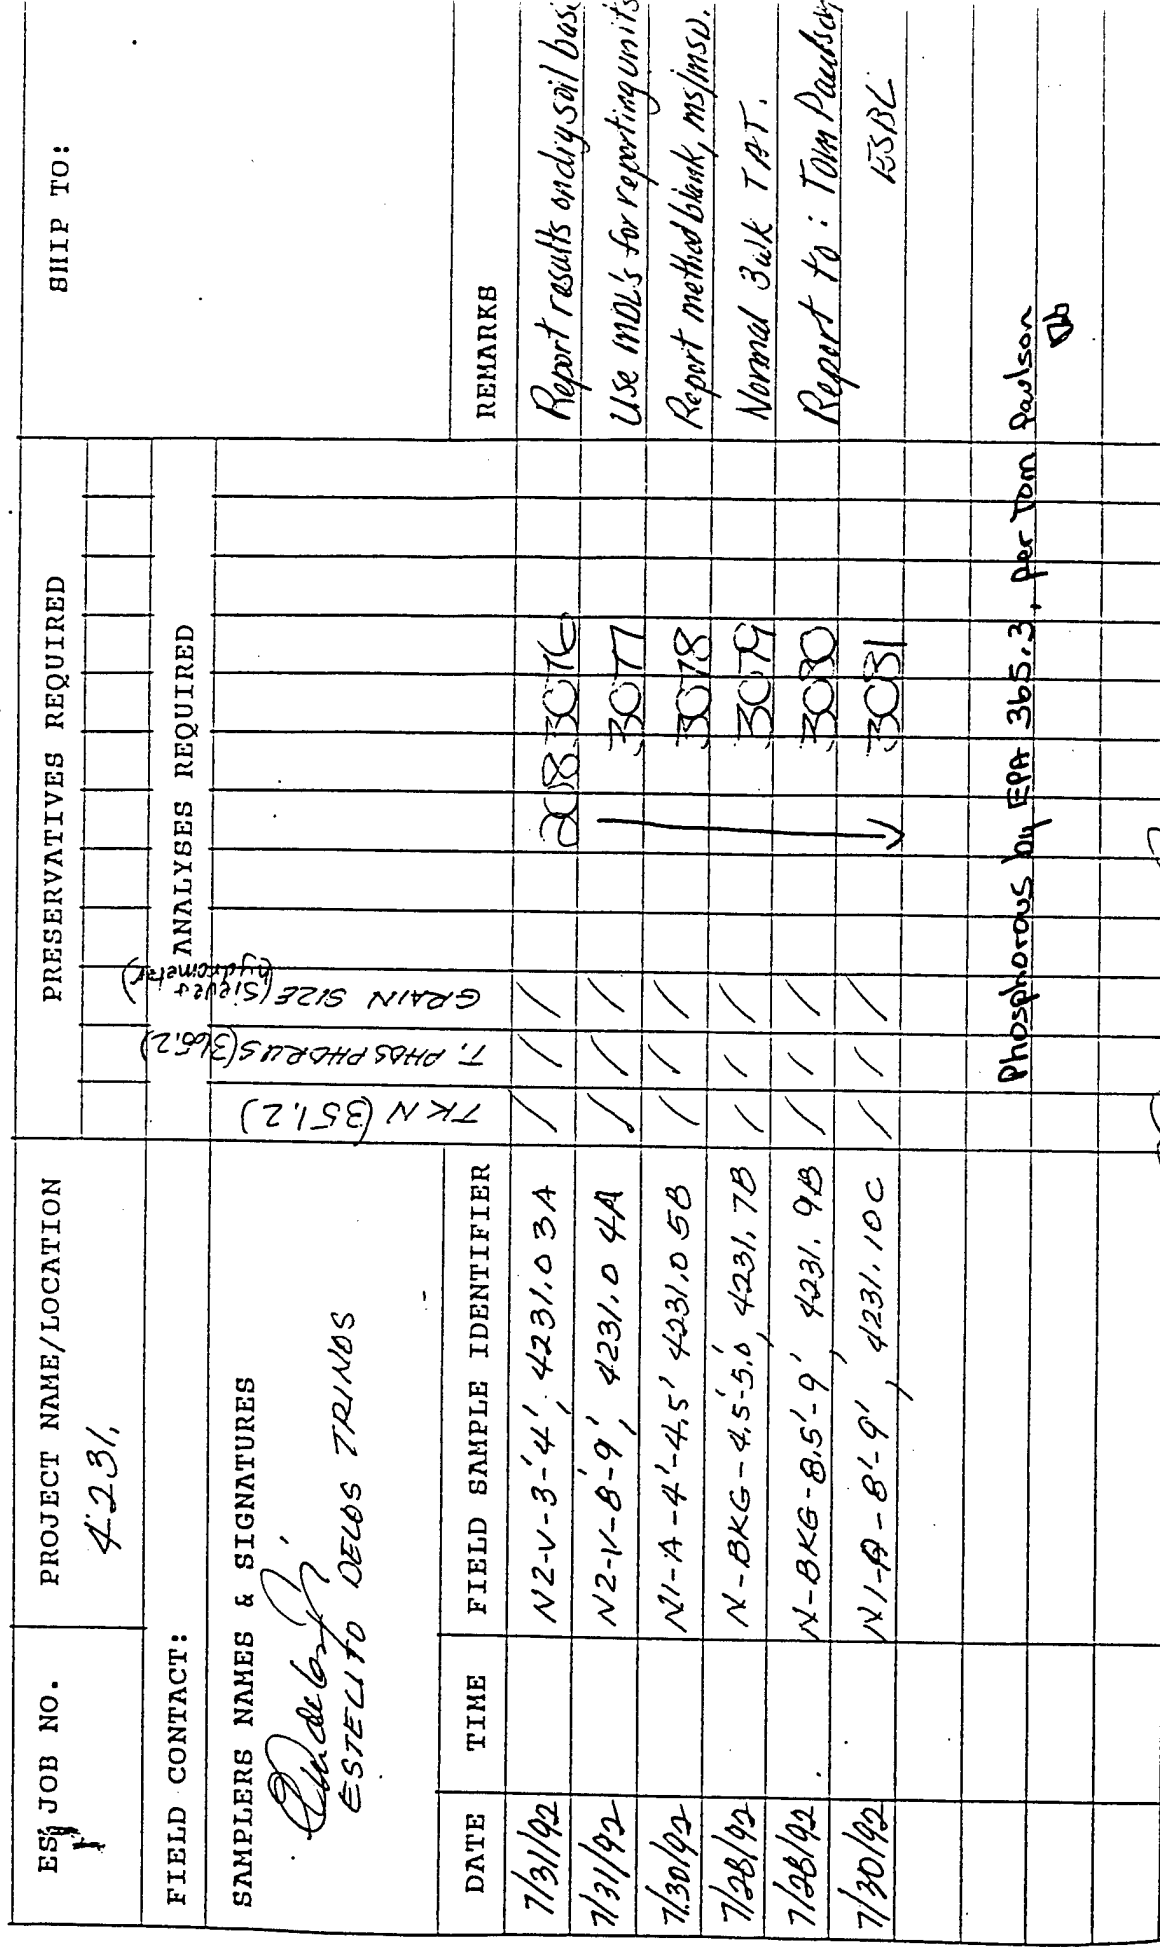 ES JOB NO.
PROJECT NAME/LOCATION
4231.
PRESERVATIVES REQUIRED
SHIP TO:
FIELD CONTACT:
ANALYSES REQUIRED
SAMPLERS NAMES & SIGNATURES
ESTELITO DELOS TRINOS
TKN (351.2)
T. PHOSPHORUS (365.2)
GRAIN SIZE (Sieve & hydrometer)
DATE TIME FIELD SAMPLE IDENTIFIER REMARKS
7/31/92 N2-V-3-'4', 4231.03A / / / 208 3076 Report results on dry soil basi
7/31/92 N2-V-8-9', 4231.04A / / / 3077 Use MDL's for reporting units
7.30/92 N1-A-4'-4.5' 4231.05B / / / 3078 Report method blank, ms/msd.
7/28/92 N-BKG-4.5-5.0', 4231.7B / / / 3079 Normal Bulk TAT.
7/28/92 N-BKG-8.5'-9', 4231.9B / / / 3080 Report to: Tom Paulson
7/30/92 N1-A-8'-9', 4231.10C / / / 3081 ESBL
Phosphorous by EPA 365.3, per Tom Paulson